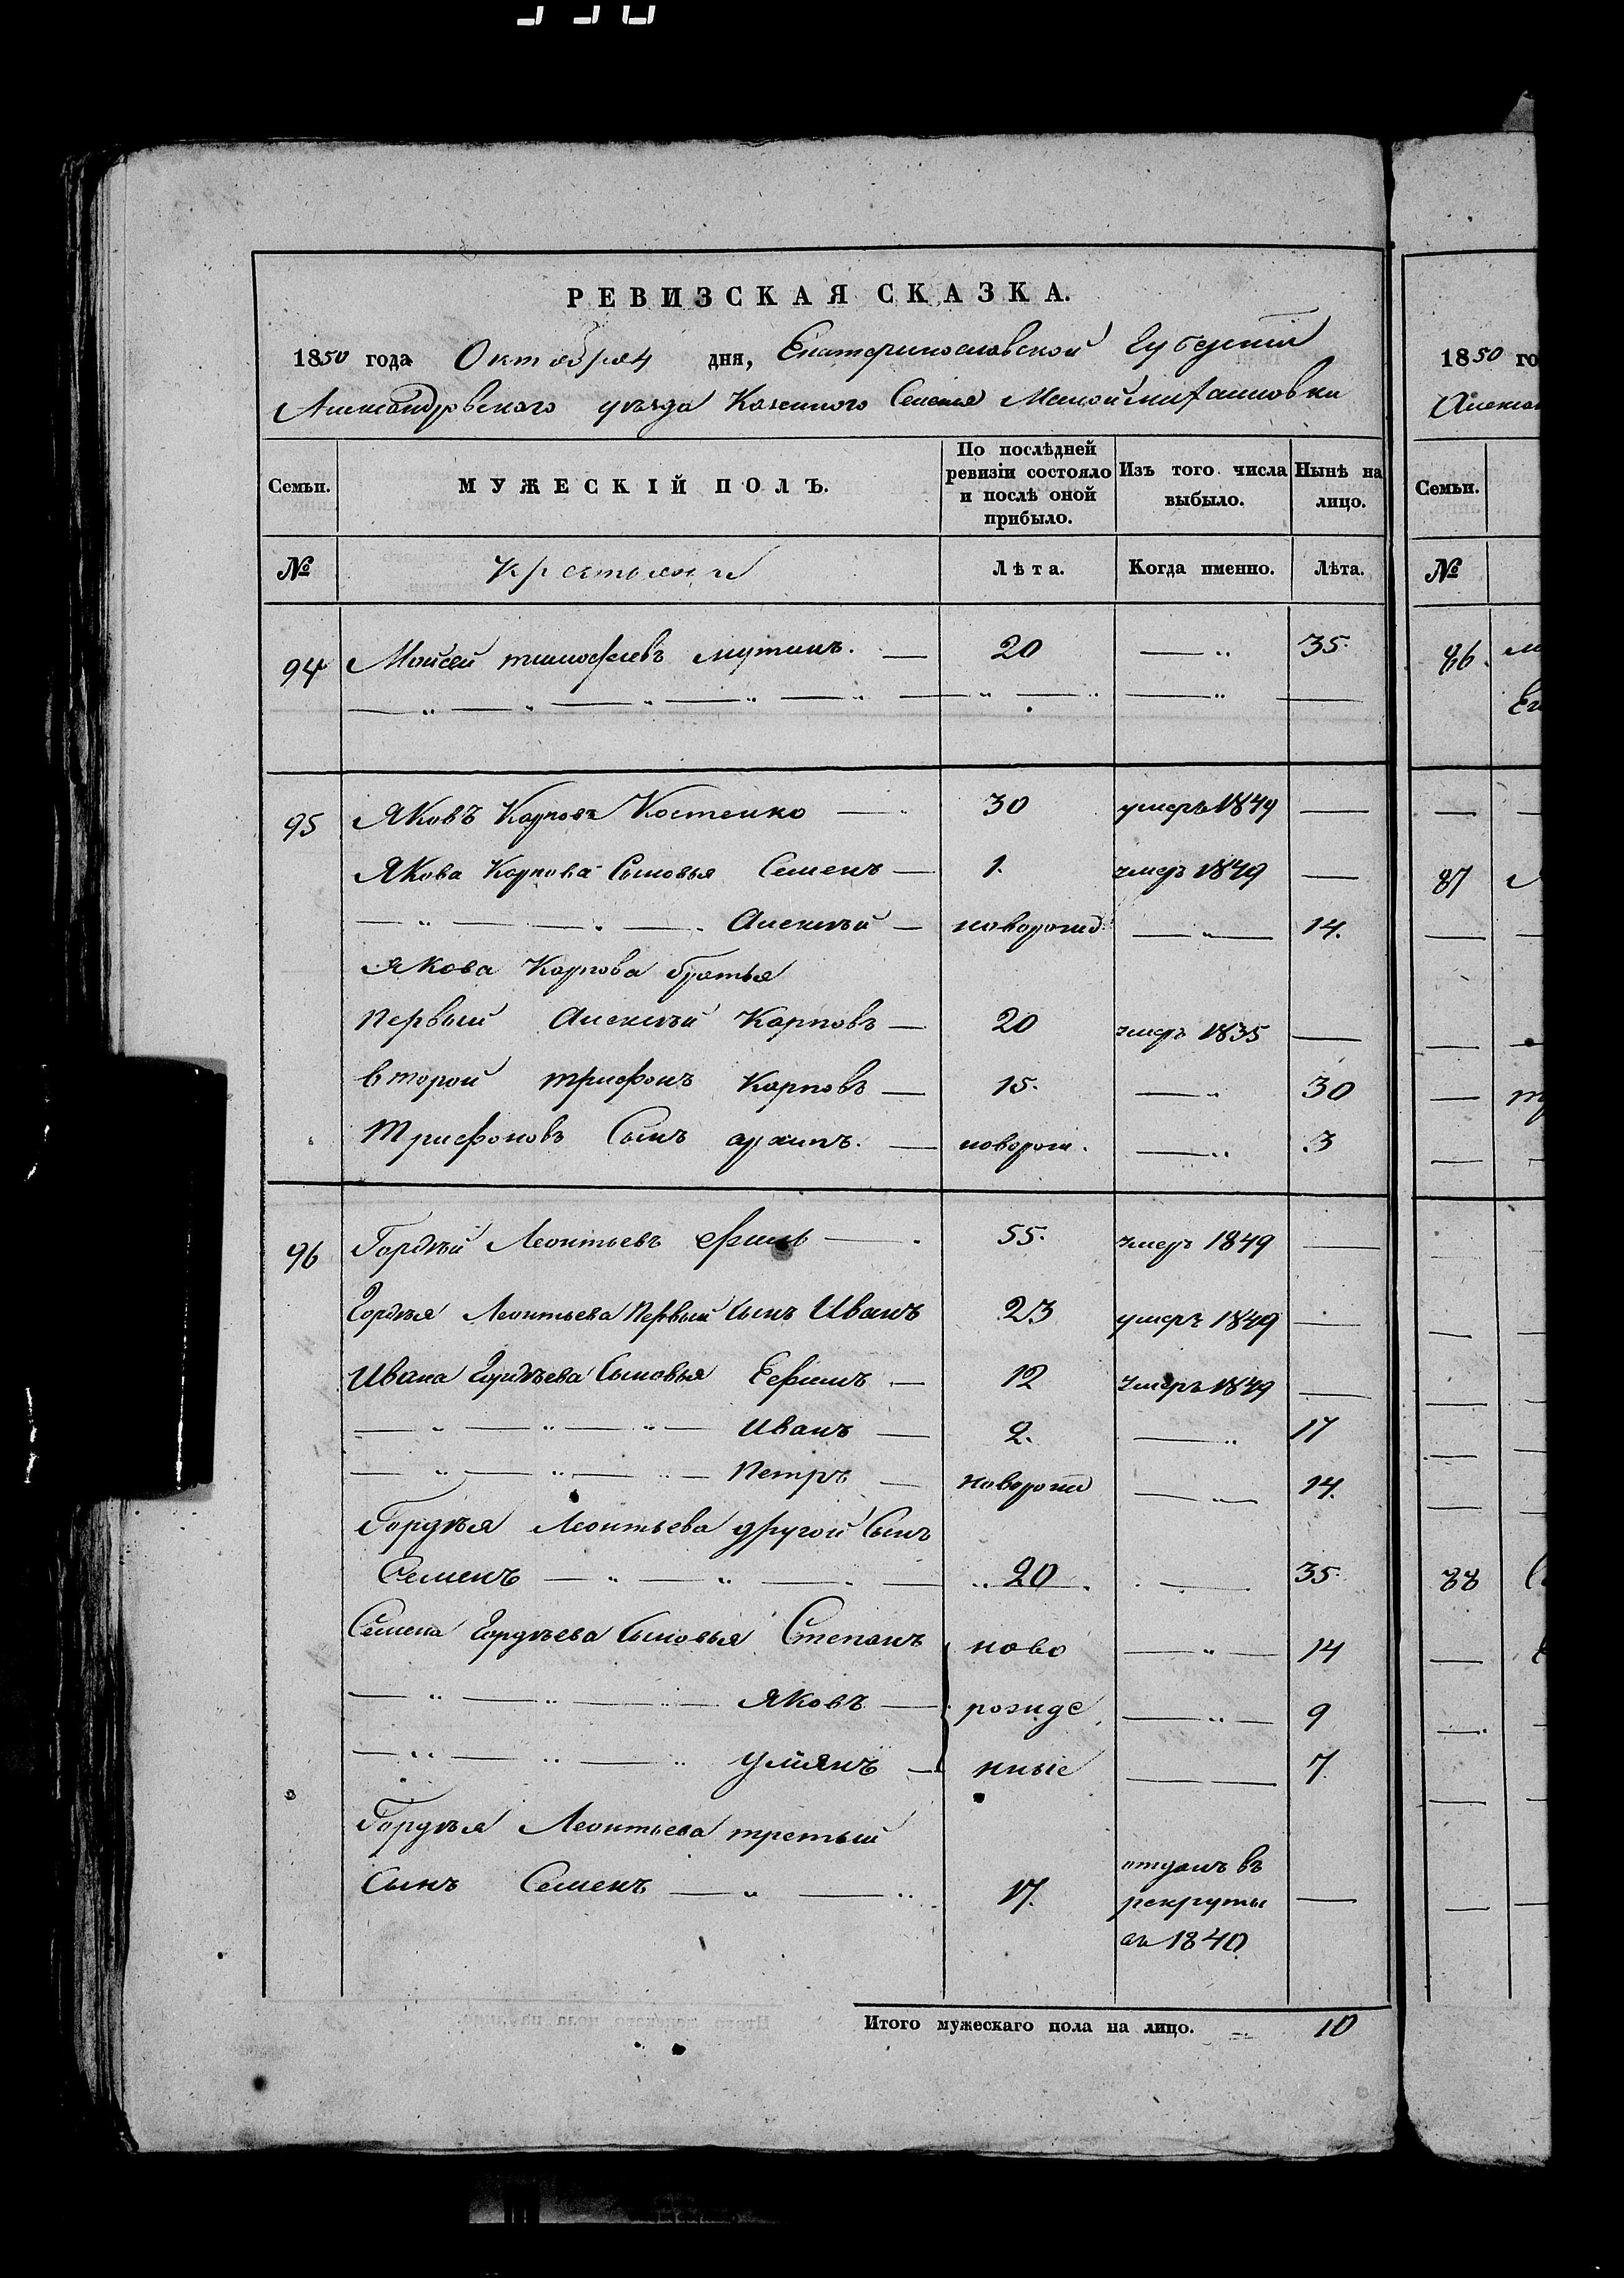 РЕВИЗСКАЯ СКАЗКА.
1850 года Октября 4 дня, Екатеринославской Губерніи
Александровского уезда Казенного Селения Малой михайловки
Семьи. МУЖЕСКІЙ ПОЛЪ. По послѣдней ревизіи состояло и послѣ оной прибыло. Изъ того числа выбыло. Нынѣ на лицо.
№ крестьяне Лѣта. Когда именно. Лѣта.
94 Мойсей тимофеевъ мутинъ. — 20 — „ 35.
95 Яковъ Карповъ Костенко — 30 умеръ 1849 —
Якова Карпова Сыновья Семенъ — 1. умеръ 1849 —
— „ — „ — Алексѣй — новорожд — „ — 14.
Якова Карпова братья
первый Алексѣй Карповъ — 20 умеръ 1835 —
второй трифонъ Карповъ — 15. — „ 30
Трифоновъ Сынъ архипъ. — новорож. — „ 3
96 Гордѣй Леонтьевъ — 55. умеръ 1849 —
Гордѣя Леонтьева первый сынъ Иванъ 23 умеръ 1849 —
Ивана Гордѣева Сыновья Ефимъ — 12 умеръ 1849 —
— „ — „ — „ — Иванъ — 2. — „ 17
— „ — „ — „ — Петръ — новорожд — „ — 14.
Гордѣя Леонтьева другой Сынъ
Семенъ — „ — „ — „ — 20 — 35.
Семена Гордѣева Сыновья Степанъ ново — „ — 14
— „ — „ — „ — Яковъ — рожде — „ — 9
— „ — „ — „ — ныіе — — 7.
Гордѣя Леонтьева третьий
Сынъ Семенъ — „ — „ 17. отданъ въ
рекруты —
въ 1840
Итого мужескаго пола на лицо. 10
1850 го
Алексан
Семьи.
№
86.
87
88